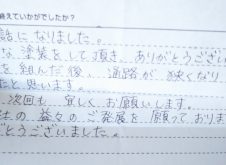 終えていかがでしたか？
話になりました。
な塗装をして頂き、ありがとうござい
を組んだ後、通路が狭くなり
たと思います。
次回も宜しくお願いします。
社の益々のご発展を願っておりま
どうございました。